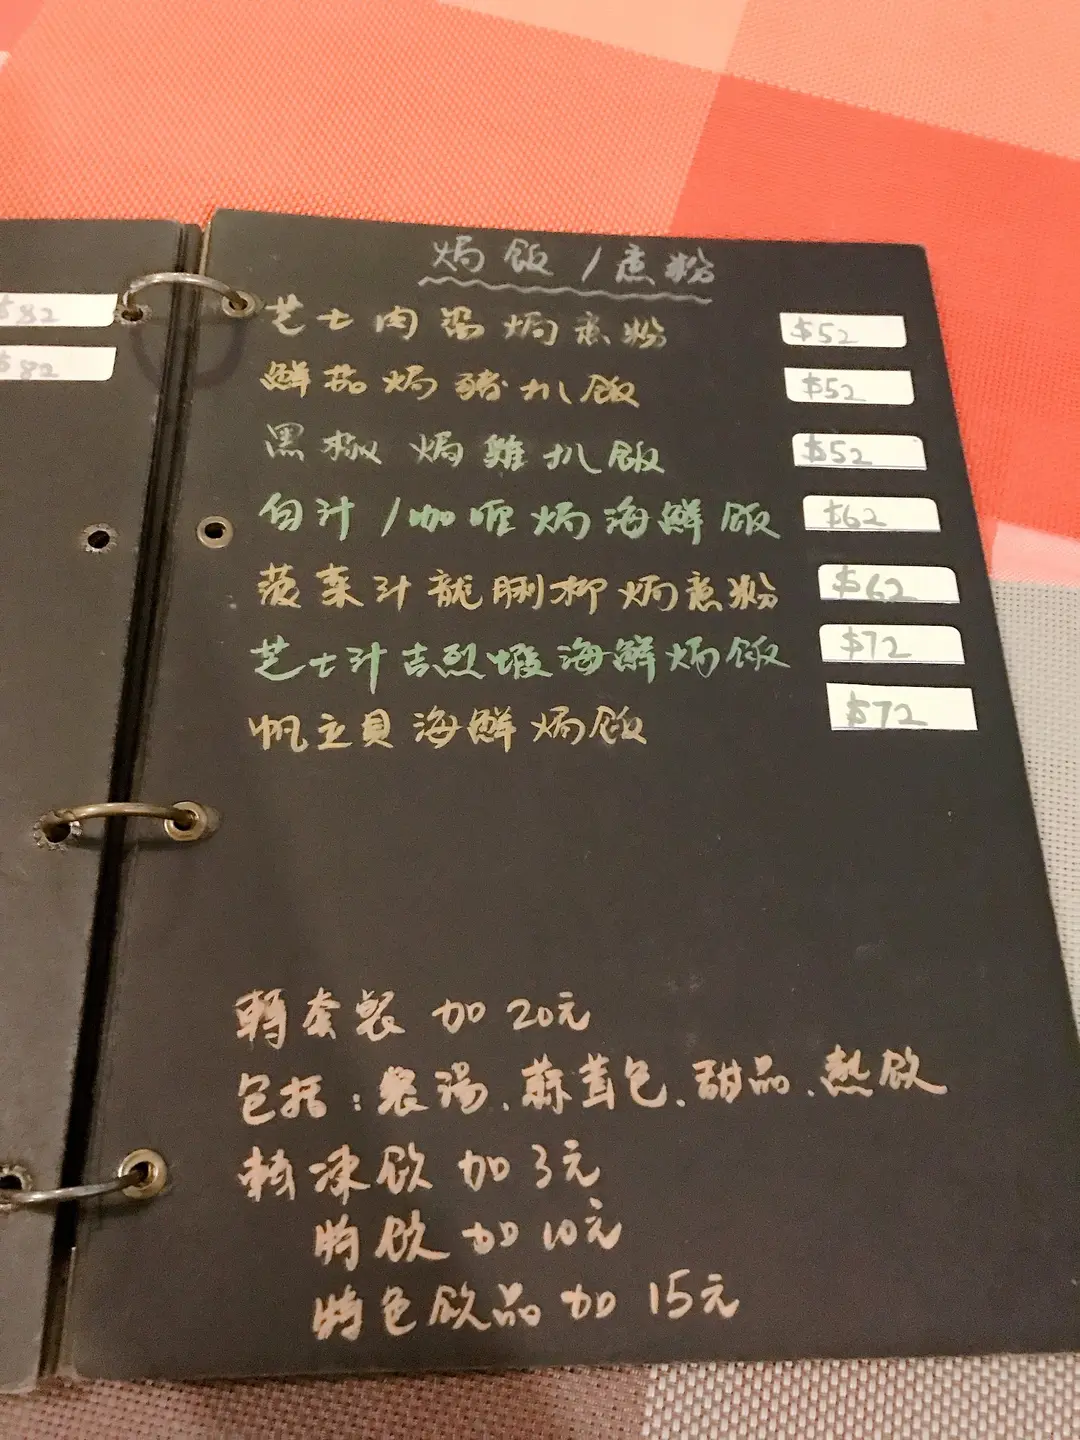 焗飯/意粉
芝士肉醬焗意粉 $52
鮮茄焗豬扒飯 $52
黑椒焗雞扒飯 $52
白汁/咖喱焗海鮮飯 $62
菠菜汁龍脷柳焗意粉 $62
芝士汁吉列蝦海鮮焗飯 $72
帆立貝海鮮焗飯 $72
$82
$82
轉套餐 加20元
包括:餐湯、蒜茸包、甜品、熱飲
轉凍飲 加3元
特飲 加10元
特色飲品 加15元